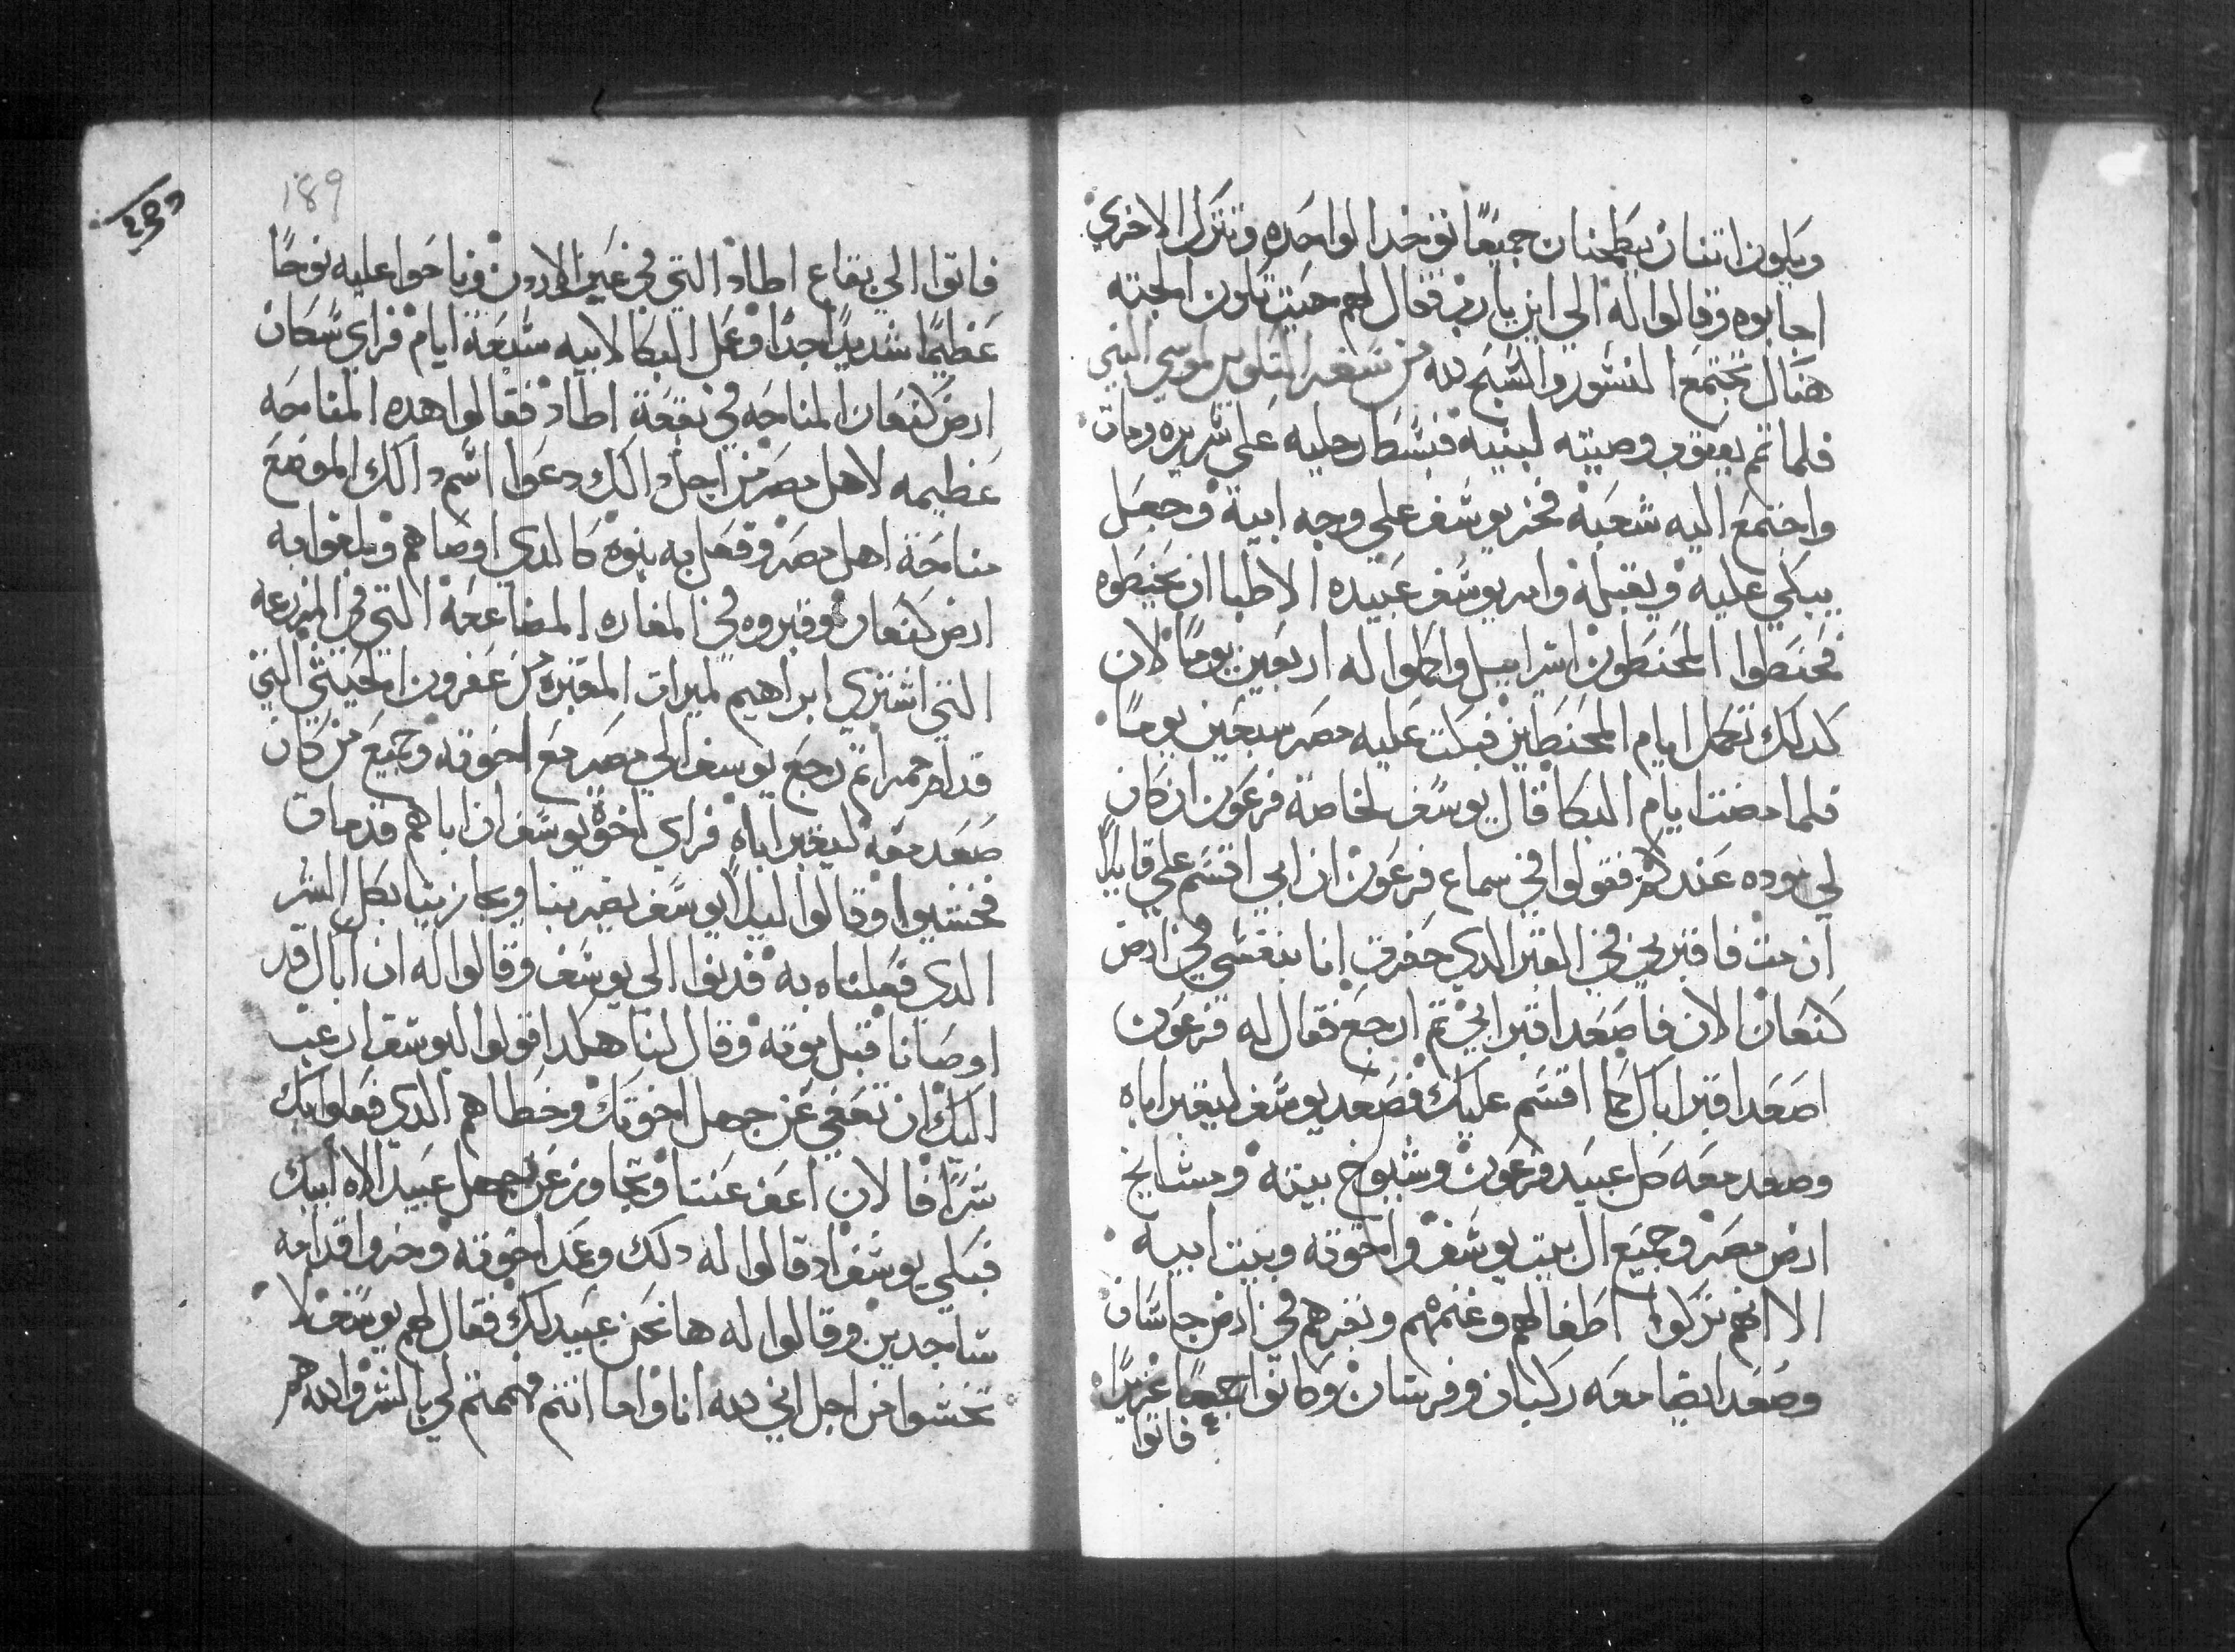 ويكون اتنتان يطحنان جميعًا توخد الواحده وتترك الاخري
اجابوه وقالوا له الي اين يارب فقال لهم حيت تكون الجته
هناك تجتمع النسور والسبح لله من سفر التكوين لموسي النبي
فلما تم يعقوب وصيته لبنيه فبسط رجليه علي سريره ومات
واجتمع اليه شعبه فخر يوسف علي وجه ابيه وجعل
يبكي عليه ويقبله وامر يوسف عبيده الاطبا ان يحنطوه
فحنطوا المحنطون اسراييل واكملوا له اربعين يومًا لان
كدلك تكمل ايام المحنطين فبكت عليه مصر سبعين يومًا
فلما مضت ايام البكا قال يوسف لخاصة فرعون ان كان
لي موده عندكم فقولوا في سماع فرعون ان ابي اقسم علي قايلاً
ان مت فاقبرني في القبر الدي حفرت انا بنفسي في ارض
كنعان الان فاصعد اقبر ابي تم ارجع فقال له فرعون
اصعد اقبر اباك كما اقسم عليك فصعد يوسف ليقبر اباه
وصعد معه كل عبيد فرعون وشيوخ بيته ومشايخ
ارض مصر وجميع ال بيت يوسف واخوته وبيت ابيه
الا انهم تركوا اطفالهم وغنمهم وبقرهم في ارض جاشان
وصعد ايضا معه ركبان وفرسان وكانوا جمعًا غزيرًا
فاتوا
189
فاتوا الي بقاع اطاد التي في عبر الاردن وناحوا عليه نوحًا
عظيمًا شديدًا جدًا وعمل البكا لابيه سبعة ايام فراي سكان
ارض كنعان المناحه في بقعة اطاد فقالوا هده المناحه
عظيمه لاهل مصر من اجل دالك دعوا اسم دالك الموضع
مناحة اهل مصر وفعل به بنوه كالدي اوصاهم وبلغوا به
ارض كنعان وقبروه في المغاره المضاعفة التي في المزرعه
التي اشتري ابراهيم لميرات المقبره من عفرون الحيتي التي
قدام ممرا تم رجع يوسف الي مصر مع اخوته وجميع من كان
صعد معه ليقبر اباه فراي اخوة يوسف ان اباهم قد مات
فخشيوا وقالوا ليلا يوسف يضر بنا ويجازينا بكل الشر
الدي فعلناه به فدنوا الي يوسف وقالوا له ان اباك قد
اوصانا قبل موته وقال لنا هكدا قولوا ليوسف ارغب
اليك ان تعفي عن جهل اخوتك وخطاهم الدي فعلوا بك
شرًا فالان اعف عننا وتجاوز عن جهل عبيد الاه ابيك
فبكي يوسف اد قالوا له دلك وعمد اخوته وخروا قدامه
ساجدين وقالوا له ها نحن عبيد لك فقال لهم يوسف لا
تخشوا من اجل اني لله انا واما انتم فهممتم لي بالشر والله هم